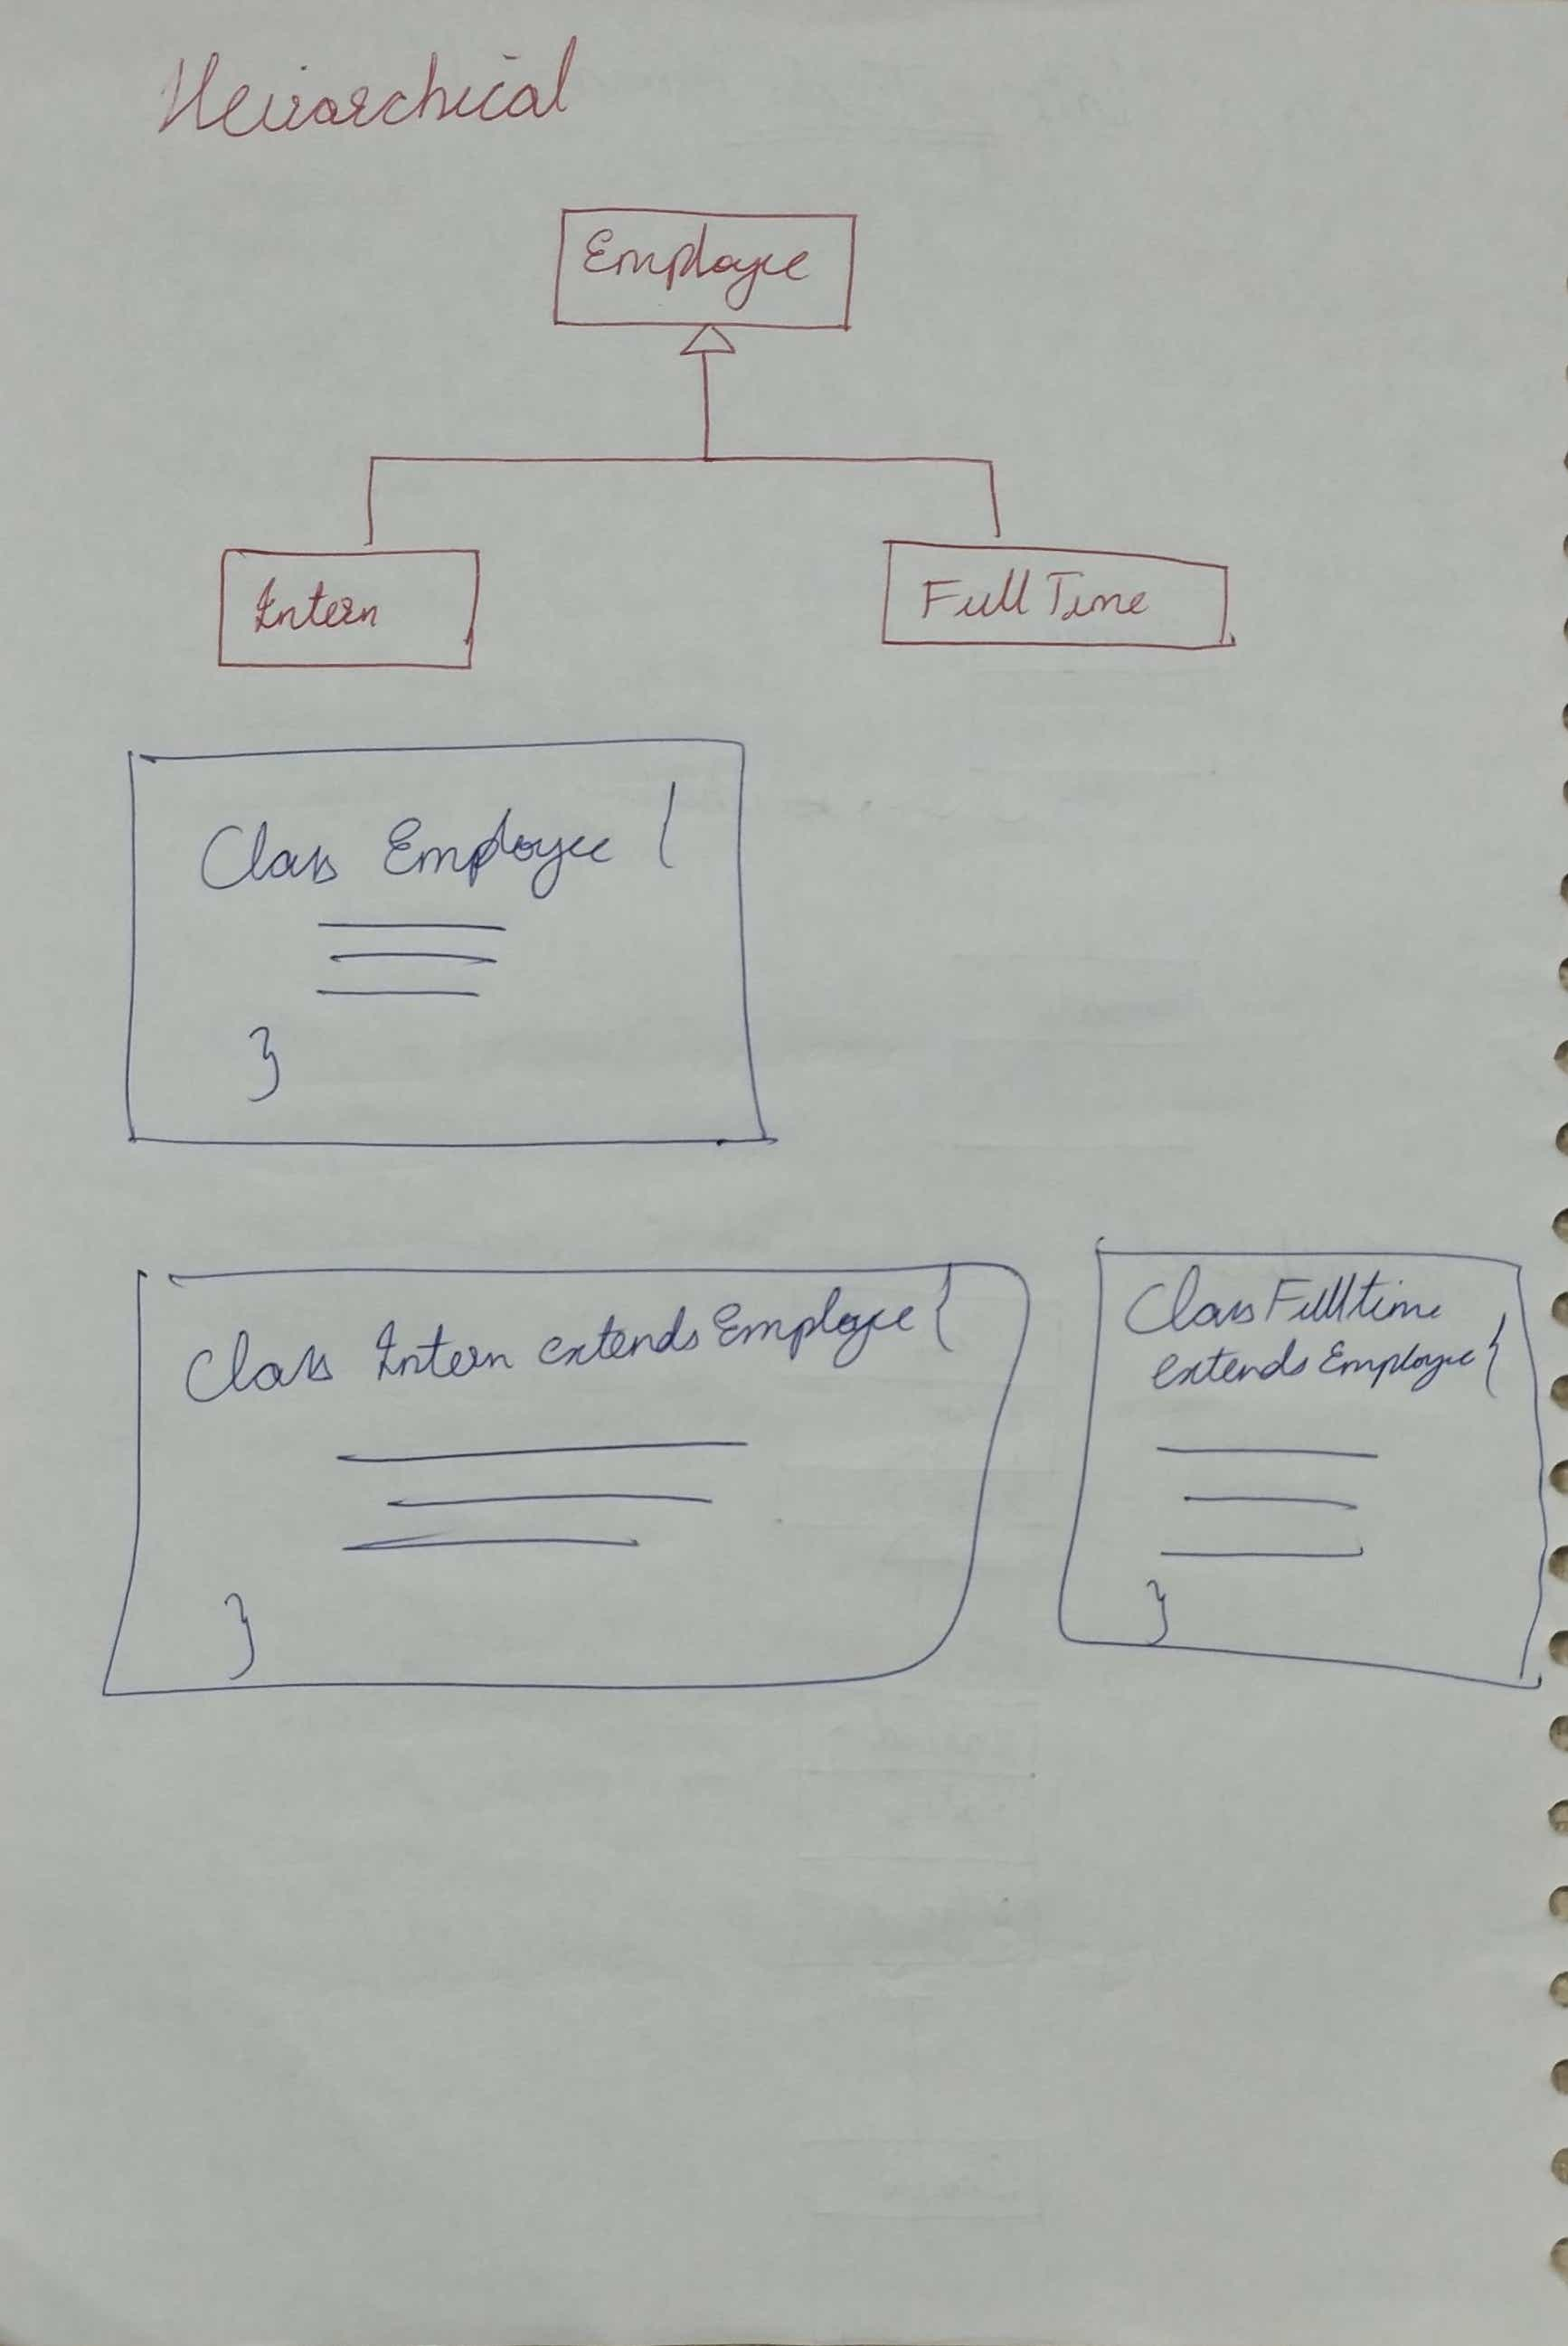 Heirarchical
Employee
Intern
Full Time
Class Employee {
}
Class Intern extends Employee {
}
Class Fulltime
extends Employee {
}